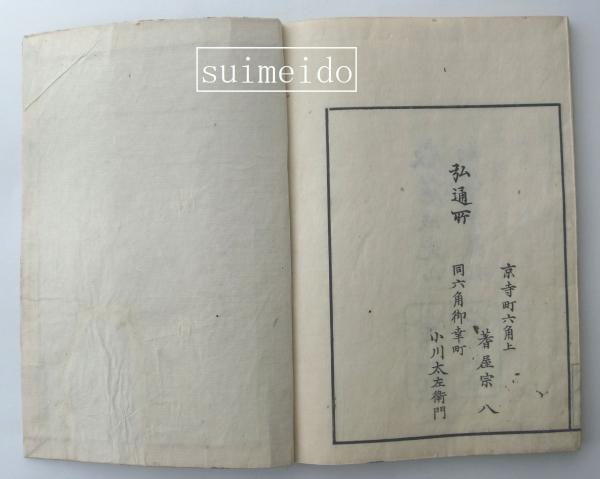 suimeido
弘通所
京寺町六角上
蓍屋宗八
同六角御幸町
小川太左衛門